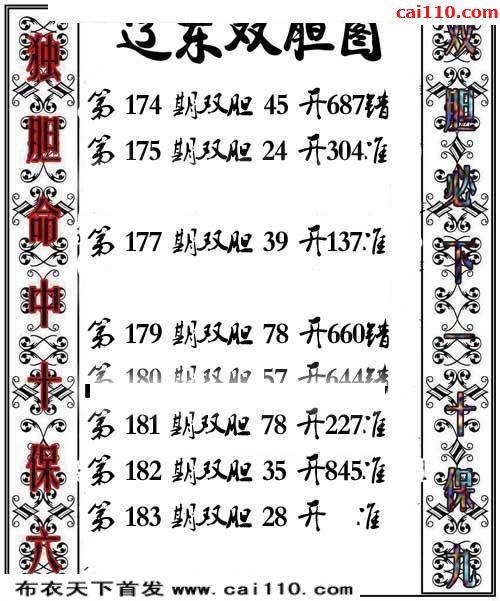 cai110.com
辽东双胆图
独胆命中十保六
第 174 期双胆 45 开687错
第 175 期双胆 24 开304准
第 177 期双胆 39 开137准
第 179 期双胆 78 开660错
第 180 期双胆 57 开644错
第 181 期双胆 78 开227准
第 182 期双胆 35 开845准
第 183 期双胆 28 开 准
双胆必下一十保九
布衣天下首发 www.cai110.com